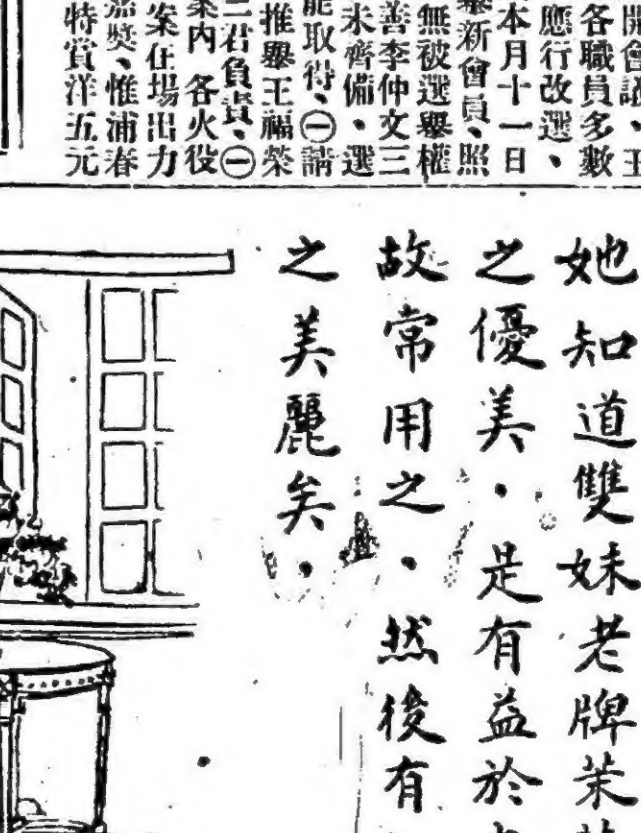 開會議、王
各職員多數
應行改選、
本月十一日
舉新會員、照
無被選舉權
善李仲文三
未齊備・選
能取得、㊀請
推舉王福榮
二君負責、㊀
案內 各火役
案在場出力
嘉獎、惟浦春
特賞洋五元
她知道雙妹老牌茉
之優美・是有益於
故常用之・然後有
之美麗矣・